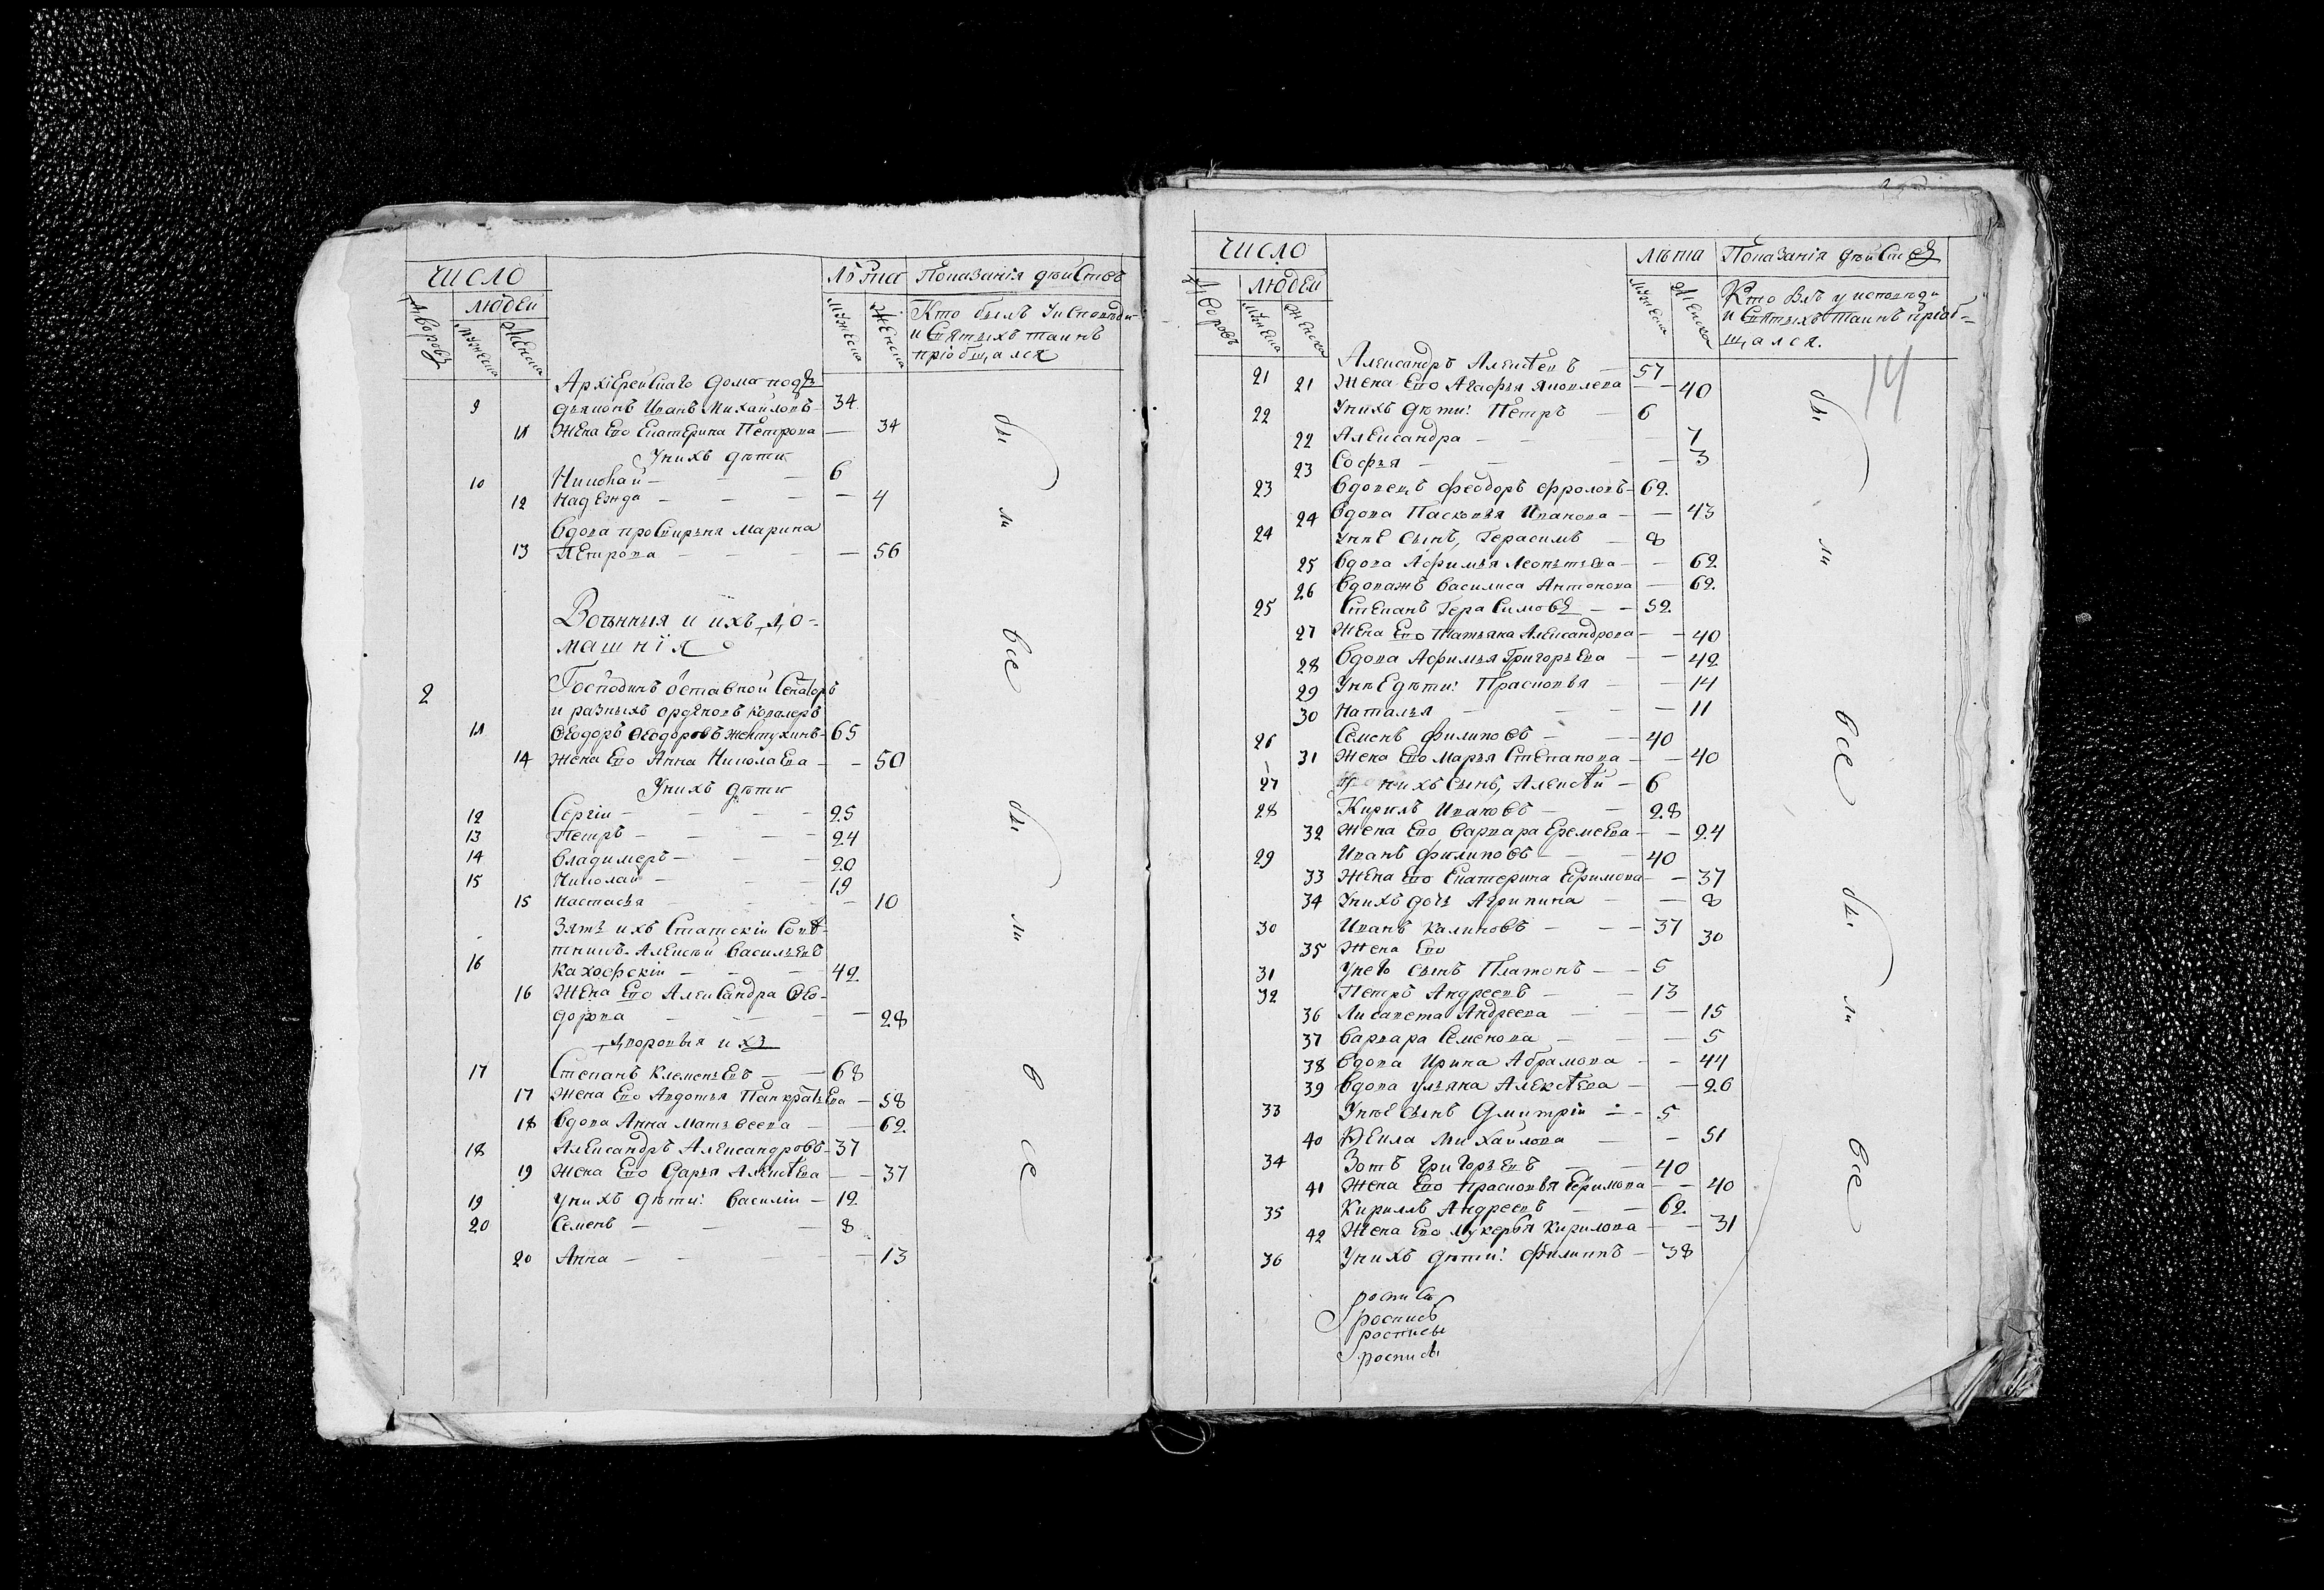 ЧИСЛО
Лѣта Показанія дѣйствъ
Дворовъ
людей
Мужеска
Женска
Мужеска
Женска
Кто былъ у исповѣди
и святыхъ таинъ
пріобщался
Архіерейскаго дома подъ
9 дьяконъ Иванъ Михайловъ 34
11 Жена Его Екатерина Петрова — 34
У нихъ дѣти
10 Николай — 6
12 Надежда — — — — 4
Вдова просвирьня Марина
13 Петрова — — — — 56
Воѣнныя и ихъ до-
машнія
2 Господинъ оставной Сенаторъ
и разныхъ орденовъ ковалеръ
11 Ѳеодоръ Ѳеодоровъ Желтухинъ 65
14 Жена Его Анна Николаева — — 50
У нихъ дѣти
12 Сергіи — — — — 25
13 Петръ — — — — 24
14 Владимеръ — — — 20
15 Николай — — — 19
15 Настасья — — — — 10
Зять ихъ Статскіи Совѣ-
тникъ Алексѣй Васильевъ
16 Кахофскіи — — — 42
16 Жена Его Александра Ѳео-
дорова — — — — 28
Дворовыя ихъ
17 Степанъ Клеменьевъ — — 68
17 Жена Его Авдотья Панкратьева — 58
18 Вдова Анна Матьвеева — — 62
18 Александръ Александровъ 37
19 Жена Его Дарья Алексѣева — — 37
19 У нихъ дѣти: Василіи — 12
20 Семенъ — — — 8
20 Анна — — — — 13
бы
ли
все
бы
ли
все
ЧИСЛО
Лѣта Показанія дѣйствъ
Дворовъ
людей
Мужеска
Женска
Мужеска
Женска
Кто былъ у исповѣди
и святыхъ таинъ пріоб-
щался.
14
21 Александръ Алексѣевъ — 57
21 Жена Его Агафья Яковлева — — 40
22 У нихъ дѣти: Петръ — 6
22 Александра — — — 7
23 Софья — — — — 3
23 Вдовецъ Феодоръ Фроловъ — 62
24 Вдова Пасковья Иванова — — 43
24 У нее сынъ, Герасимъ — 8
25 Вдова Афимья Леонтьева — — 62
26 Вдоважъ Василиса Антонова — 62
25 Степанъ Герасимовъ — — 52
27 Жена Его Татьяна Александрова — — 40
28 Вдова Афимья Григорьева — — 42
29 У нее дѣти: Прасковья — — 14
30 Наталья — — — — 11
26 Семенъ Филиповъ — — 40
31 Жена Его Марья Степанова — — 40
27 У нихъ сынъ, Алексѣй — 6
28 Кирилъ Ивановъ — — 28
32 Жена Его Варвара Еремеева — — 24
29 Иванъ Филиповъ — — 40
33 Жена Его Екатерина Ефимова — — 37
34 У нихъ дочь Агрипина — — 8
30 Иванъ Калиновъ — — — 37
35 Жена Его 30
31 У него сынъ Платонъ — — 5
32 Петръ Андреевъ — — 13
36 Лисавета Андреева — — — 15
37 Варвара Семенова — — — 5
38 Вдова Ирина Абрамова — — 44
39 Вдова Ульяна Алексѣева — — 26
33 У нее сынъ Дмитріи — — 5
40 Михайлова — — 51
34 Зотъ Григорьевъ — — 40
41 Жена Его Прасковья Ефимова — — 40
35 Кириллъ Андреевъ — — 62
42 Жена Его Лукерья Кирилова — — 31
36 У нихъ дѣти: Филиппъ — 38
роспись
роспись
росписы
росписи
бы
ли
все
бы
ли
все